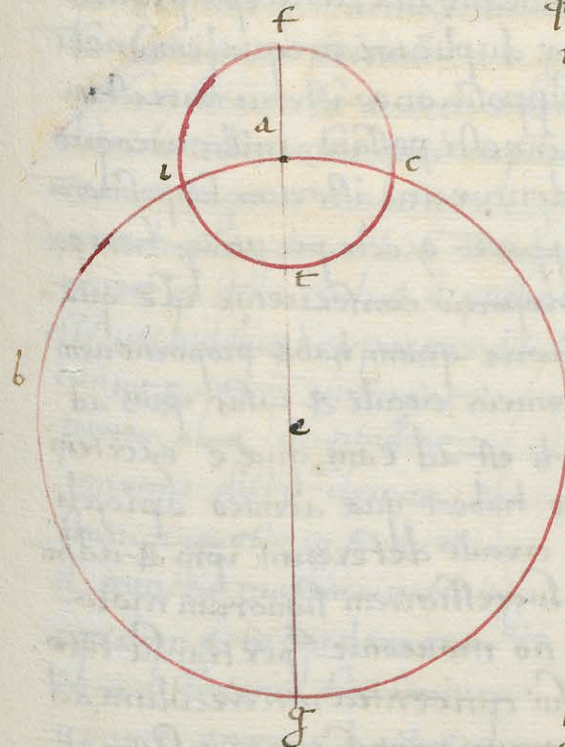 f
a
ι
c
t
b
e
g